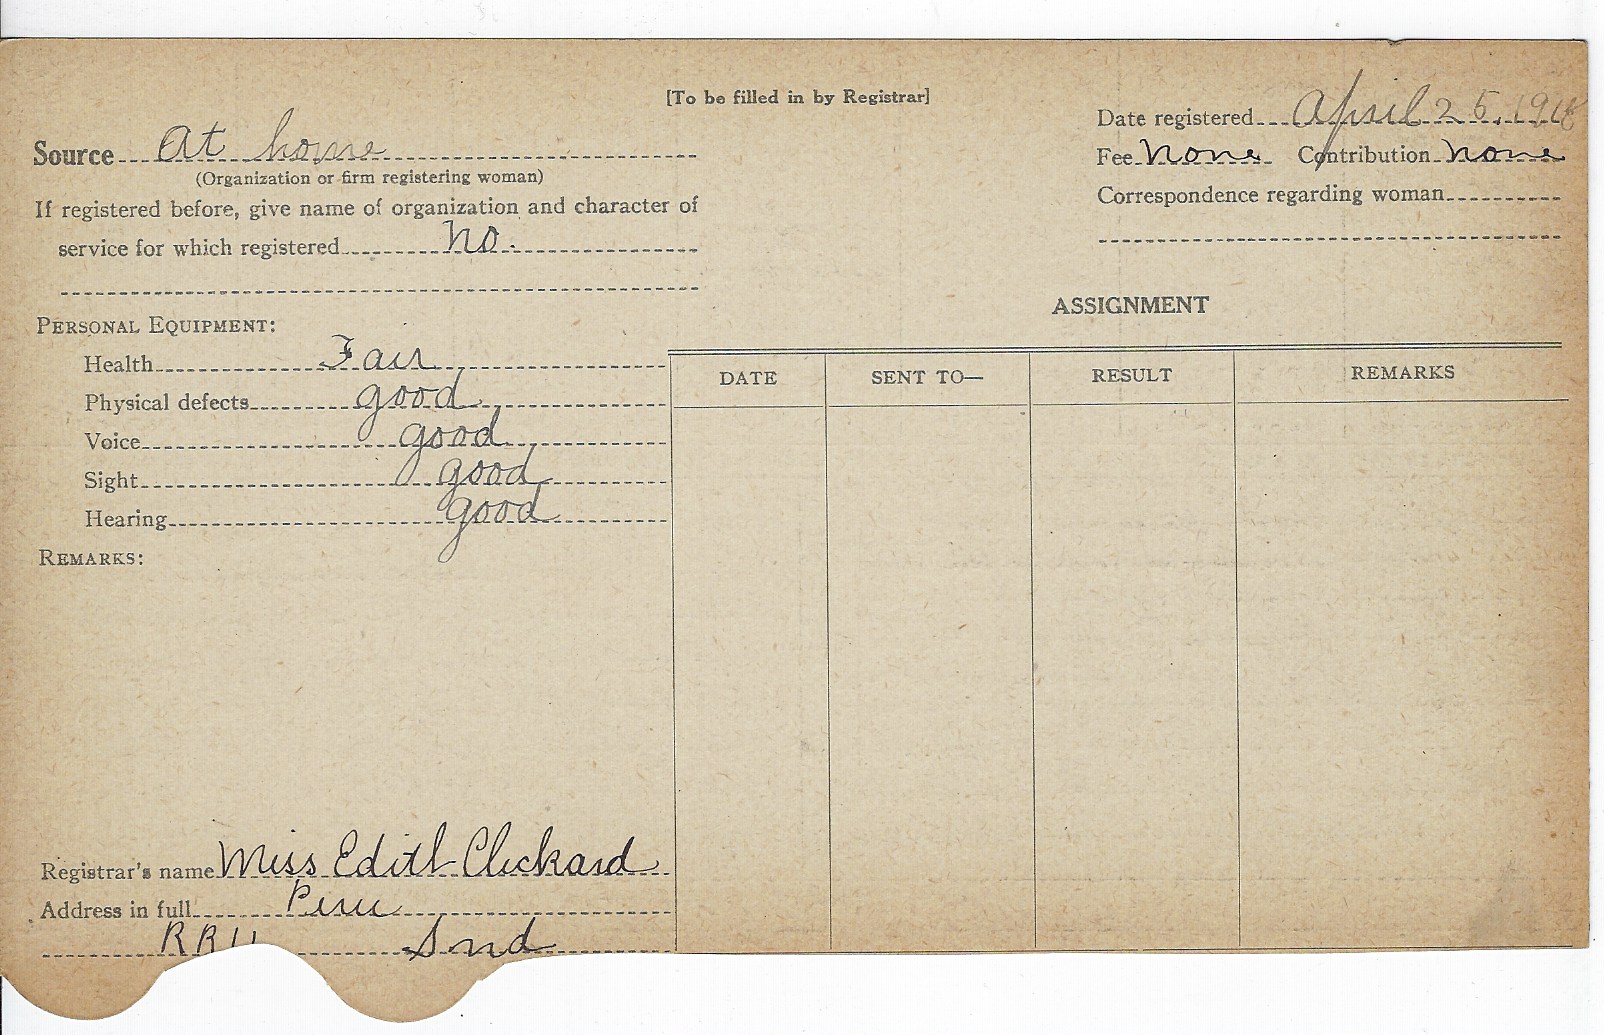 [To be filled in by Registrar]
Date registered April 25, 1918
Source At home
Fee None Contribution None
(Organization or firm registering woman)
Correspondence regarding woman
If registered before, give name of organization and character of
service for which registered No.
ASSIGNMENT
PERSONAL EQUIPMENT:
Health Fair
Physical defects good
Voice good
Sight good
Hearing good
DATE SENT TO— RESULT REMARKS
REMARKS:
Registrar's name Miss Edith Clickard
Address in full Peru
RR Ind